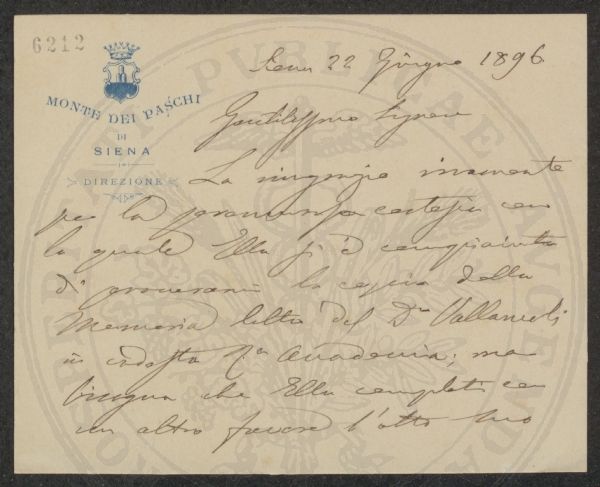 6212
MONTE DEI PASCHI
DI
SIENA
DIREZIONE
Siena 22 Giugno 1896
Gentilissimo Signore
La ringrazio vivamente
per la premurosa cortesia con
la quale Ella si è compiaciuta
di procurarmi la copia della
Memoria letta del Dr Vallancoli
in codesta Rª Accademia; ma
bisogna che Ella completi con
un altro favore l'atto suo